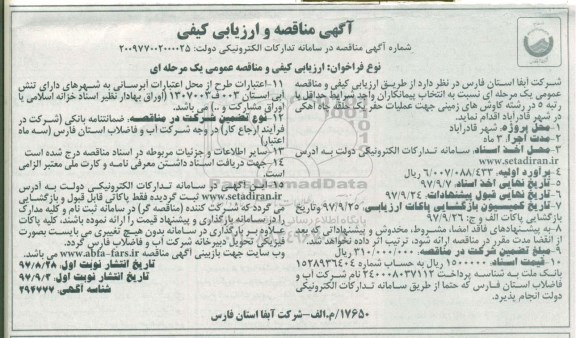 آگهی مناقصه و ارزیابی کیفی
شماره آگهی مناقصه در سامانه تدارکات الکترونیکی دولت: ۲۰۰۹۷۷۰۰۲۰۰۰۰۲۵
نوع فراخوان: ارزیابی کیفی و مناقصه عمومی یک مرحله ای
شرکت آبفا استان فارس در نظر دارد از طریق ارزیابی کیفی و مناقصه
عمومی یک مرحله ای نسبت به انتخاب پیمانکاران واجد شرایط حداقل با
رتبه ۵ در رشته کاوش های زمینی جهت عملیات حفر یک حلقه چاه آهکی
در شهر قادرآباد اقدام نماید.
۱- محل پروژه: شهر قادرآباد
۲- مدت اجرا: ۳ ماه
۳- محل اخذ اسناد: سامانه تدارکات الکترونیکی دولت به آدرس
www.setadiran.ir
۴- برآورد اولیه: ۶/۰۰۷/۰۸۸/۴۳۳ ریال
۵- تاریخ نهایی اخذ اسناد: ۹۷/۹/۷
۶- تاریخ نهایی قبول پیشنهادات: ۹۷/۹/۲۴
۷- تاریخ کمیسیون بازگشایی پاکات ارزیابی: ۹۷/۹/۲۵ وتاریخ
بازگشایی پاکات الف و ج: ۹۷/۹/۲۶
۸- به پیشنهادهای فاقد امضا، مشروط، مخدوش و پیشنهاداتی که بعد
از انقضا مدت مقرر در مناقصه ارائه شود، ترتیب اثر داده نخواهد شد.
۹- مبلغ تضمین شرکت در مناقصه: ۳۱۰/۰۰۰/۰۰۰ ریال
۱۰- قیمت اسناد: ۱۵۰۰۰۰۰ ریال به حساب شماره ۱۵۲۸۹۳۶۴۰۴
بانک ملت به شناسه پرداخت ۲۴۰۰۰۸۰۳۷۱۱۲ نام شرکت آب و
فاضلاب استان فارس که حتما از طریق سامانه تدارکات الکترونیکی
دولت انجام پذیرد.
۱۱- اعتبارات طرح از محل اعتبارات آبرسانی به شهرهای دارای تنش
آبی استان ۰۰۳-ف-۱۳۰۷۰۰۳ (اوراق بهادار نظیر اسناد خزانه اسلامی یا
اوراق مشارکت و ..) می باشد.
۱۲- نوع تضمین شرکت در مناقصه: ضمانتنامه بانکی (شرکت در
فرایند ارجاع کار) در وجه شرکت آب و فاضلاب استان فارس (سه ماه
اعتبار)
۱۳- سایر اطلاعات و جزئیات مربوطه در اسناد مناقصه درج شده است
۱۴- جهت دریافت اسناد داشتن معرفی نامه و کارت ملی معتبر الزامی
است.
۱۵- این آگهی در سامانه تدارکات الکترونیکی دولت به آدرس
www.setadiran.ir ثبت گردیده فقط پاکاتی قابل قبول و بازگشایی
می گردد که شرکت کننده (مناقصه گر) در سامانه ثبت نام و کلیه مدارک
را در سامانه بارگذاری و پیشنهاد قیمت را ارائه نموده باشند. کلیه پاکات
علاوه بر بارگذاری در سامانه بدون هیچ تغییری می بایست بصورت
فیزیکی تحویل دبیرخانه شرکت آب و فاضلاب فارس گردد.
وب سایت جهت بازبینی آگهی مناقصه www.abfa-fars.ir می باشد.
تاریخ انتشار نوبت اول: ۹۷/۸/۲۸
تاریخ انتشار نوبت دوم: ۹۷/۹/۳
شناسه آگهی: ۲۹۴۷۷۷
۱۷۶۵۰/م.الف-شرکت آبفا استان فارس